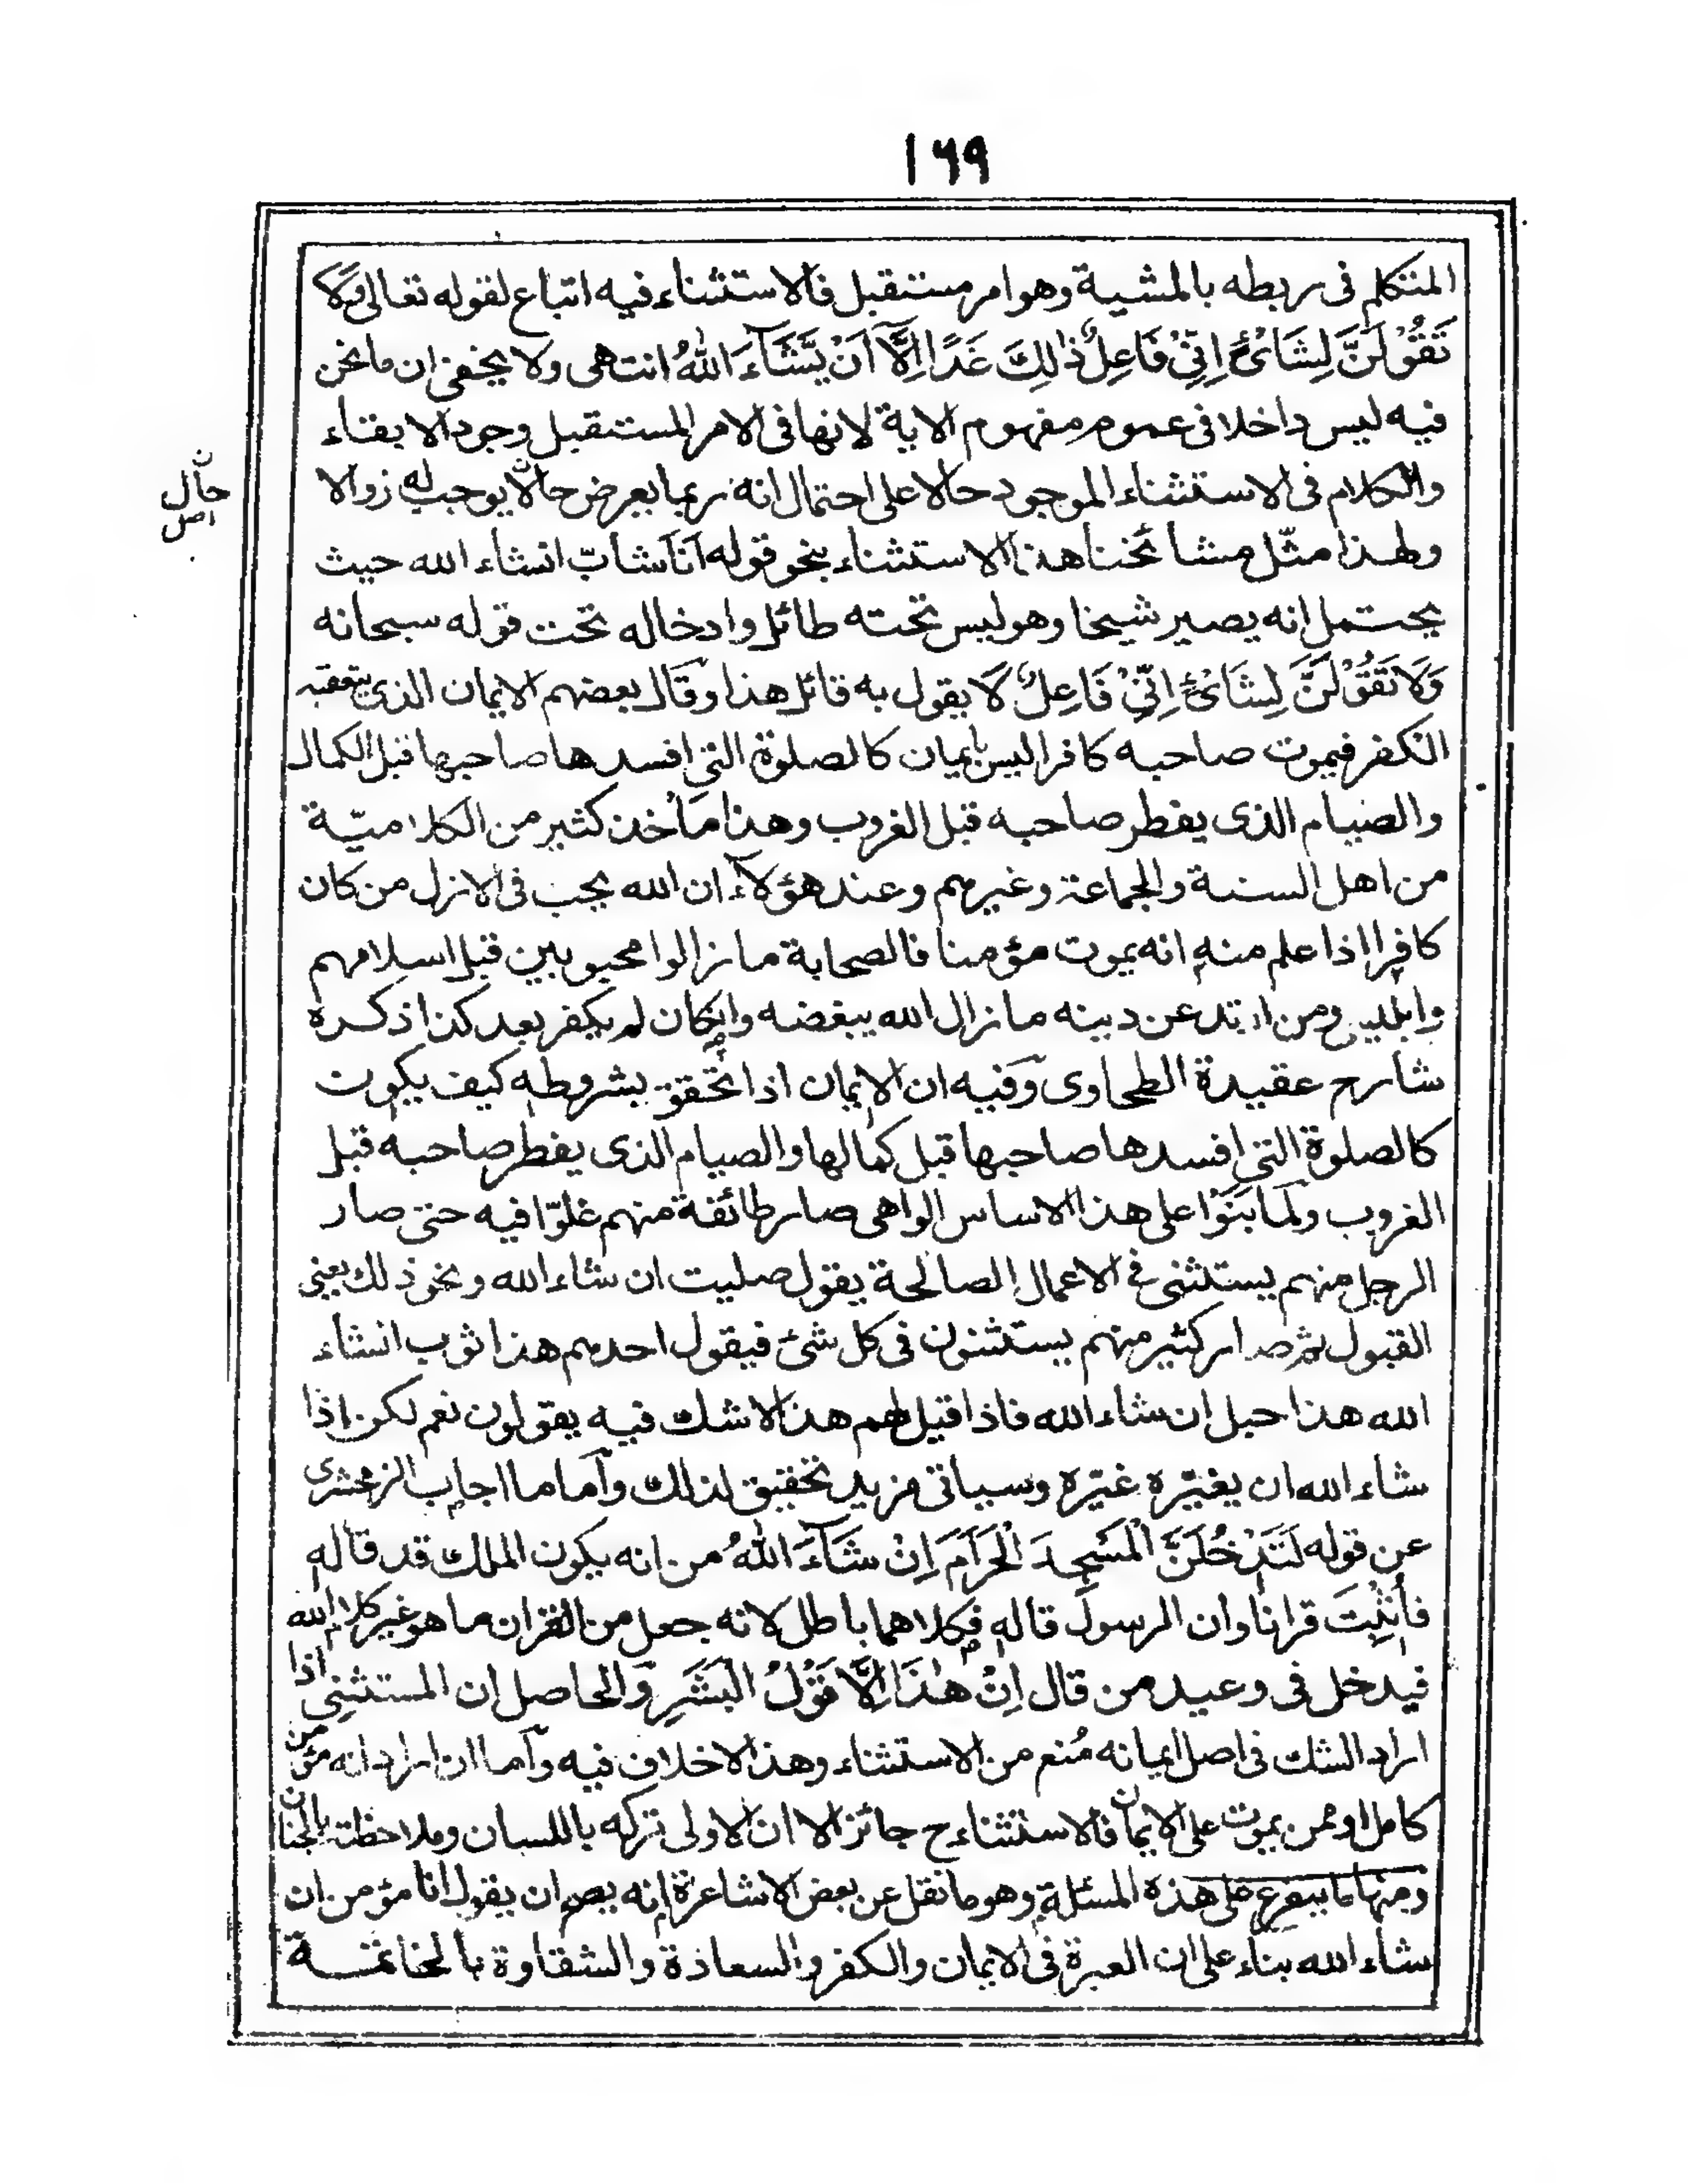 ۱۶۹
المتكلم فى ربطه بالمشية وهو امر مستقبل فالاستثناء فيه اتباع لقوله تعالى وَلَا
تَقُوْلَنَّ لِشَائْءٍ اِنِّيْ فَاعِلٌ ذٰلِكَ غَدًا اِلَّآ اَنْ يَّشَآءَ اللّٰهُ انتهى ولا يخفى ان ما نحن
فيه ليس داخلا فى عموم مفهوم الاية لانها فى الامر المستقبل وجودا لا بقاء
والكلام فى الاستثناء الموجود حالا على احتمال انه ربما يعرض حالا يوجب له زوالا
حال
اصل
ولهذا مثّل مشائخنا هذا الاستثناء بنحو قوله اَنَا شابّ انشاء الله حيث
يحتمل انه يصير شيخا وهو ليس تحته طائل وادخاله تحت قوله سبحانه
وَلَا تَقُوْلَنَّ لِشَائْءٍ اِنِّيْ فَاعِلٌ لَا يقول به قائل هذا وقال بعضهم الايمان الذى يتعقبه
الكفر فيموت صاحبه كافرا ليس بايمان كالصلوة التى افسدها صاحبها قبل الكمال
والصيام الذى يفطر صاحبه قبل الغروب وهذا مأخذ كثير من الكلاميّة
من اهل السنة والجماعة وغيرهم وعند هؤلاء ان الله يحب فى الازل من كان
كافرا اذا علم منه انه يموت مؤمنا فالصحابة ما زالوا محبوبين قبل اسلامهم
وابليس ومن ارتد عن دينه ما زال الله يبغضه وان كان لم يكفر بعد كذا ذكره
شارح عقيدة الطحاوى وفيه ان الايمان اذا تحقق بشروطه كيف يكون
كالصلوة التى افسدها صاحبها قبل كمالها والصيام الذى يفطر صاحبه قبل
الغروب ولما بَنَوْا على هذا الاساس الواهى صار طائفة منهم غلوّا فيه حتى صار
الرجل منهم يستثنى فى الاعمال الصالحة يقول صليت ان شاء الله ونحو ذلك يعنى
القبول ثم صار كثير منهم يستثنون فى كل شئ فيقول احدهم هذا ثوب انشاء
الله هذا حبل ان شاء الله فاذا قيل لهم هذا لا شك فيه يقولون نعم لكن اذا
شاء الله ان يغيّره غيّره وسياتى مزيد تحقيق لذلك وَاَما ما اجاب الزمخشرى
عن قوله لَتَدْخُلَنَّ الْمَسْجِدَ الْحَرَامَ اِنْ شَآءَ اللّٰهُ من انه يكون الملك قد قاله
فأثْبِتَ قرانا وان الرسول قاله فكلاهما باطل لانه جعل من القران ما هو غير كلام الله
فيدخل فى وعيد من قال اِنْ هٰذَا اِلَّا قَوْلُ الْبَشَرِ وَالحاصل ان المستثنى اذا
اراد الشك فى اصل ايمانه مُنع من الاستثناء وهذا لا خلاف فيه وَاَما ان اراد انه مؤمن
كامل او ممن يموت على الايمان فالاستثناء ح جائز الا ان الاولى تركه باللسان وملاحظته بالجنان
ومنها ما يتفرع على هذه المسئلة وهو ما نقل عن بعض الاشاعرة انه يصح ان يقول انا مؤمن ان
شاء الله بناء على ان العبرة فى الايمان والكفر والسعاذة والشقاوة بالخاتمــة